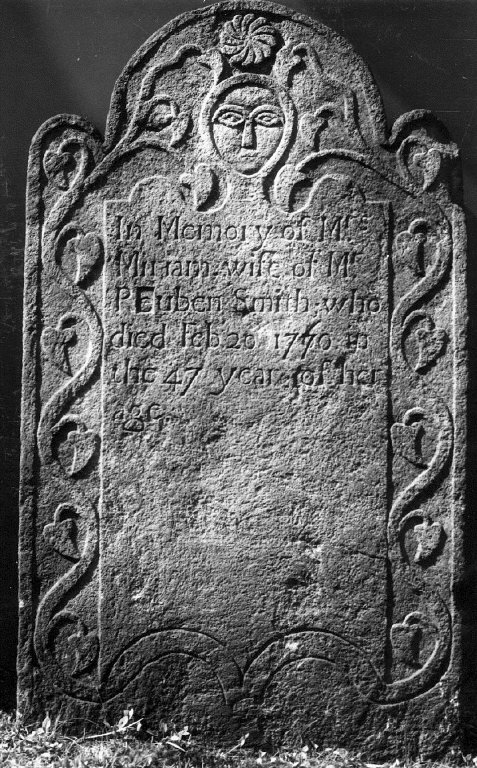 In Memory of Mrs
Miriam wife of Mr
REuben Smith who
died Feb 20 1770 in
the 47 year of her
age